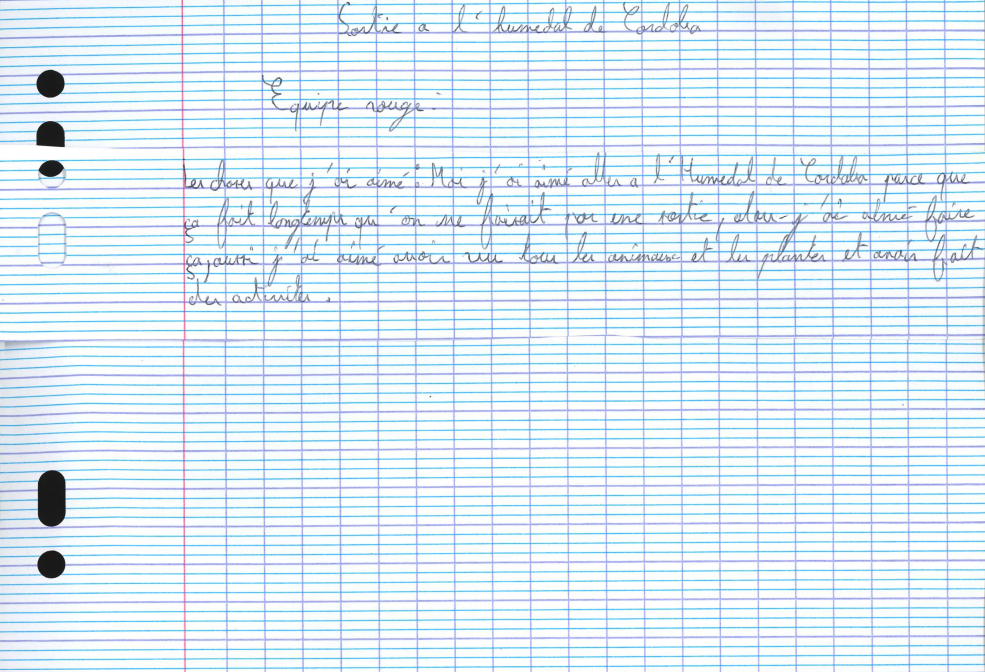 Sortie a l'humedal de Cordoba
Equipe rouge:
Les choses que j'ai aimé: Moi j'ai aimé aller a l'Humedal de Cordoba parce que
ça fait longtemps qu'on ne faisait pas une sortie, alors j'ai aimé faire
ça, aussi j'ai aimé avoir vu tous les animaux et les plantes et avoir fait
des activités.